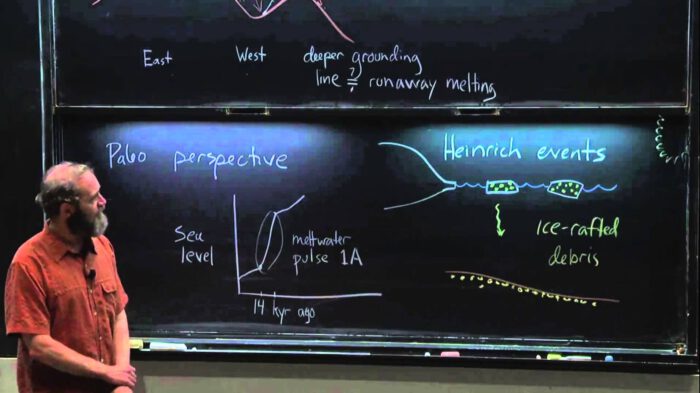 East West deeper grounding
line ?= runaway melting
Paleo perspective
Sea
level
meltwater
pulse 1A
14 kyr ago
Heinrich events
Ice-rafted
debris